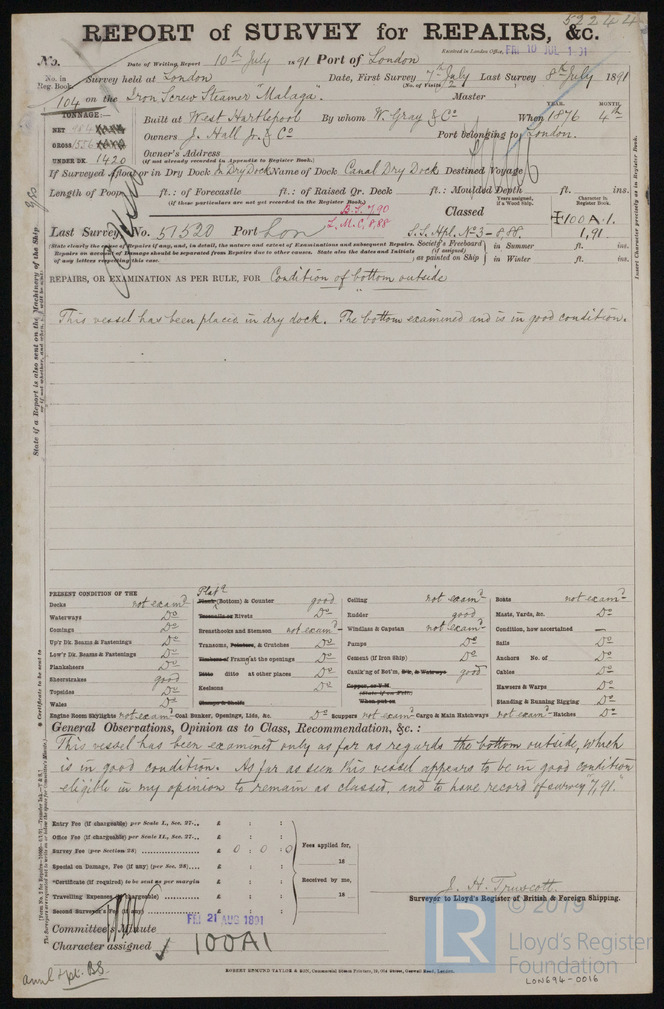 52244
REPORT of SURVEY for REPAIRS, &c.
Received in London Office, FRI 10 JUL 1891
No. Date of Writing Report 10th July 1891 Port of London
No. in Reg. Book. Survey held at London Date, First Survey 7th July Last Survey 8th July 1891
(No. of Visits 2)
104 on the Iron Screw Steamer "Malaga". Master
TONNAGE:— Built at West Hartlepool By whom W. Gray & Co When 1876 4th
YEAR. MONTH.
NET
GROSS 1526 Owners J. Hall Jr. & Co Port belonging to London.
UNDER DK. 1420 Owner's Address
(if not already recorded in Appendix to Register Book.)
If Surveyed Afloat or in Dry Dock In Dry Dock Name of Dock Canal Dry Dock Destined Voyage
Length of Poop ft.: of Forecastle ft.: of Raised Qr. Deck ft.: Moulded Depth ft. ins.
(if these particulars are not yet recorded in the Register Book.)
Years assigned, if a Wood Ship. Character in Register Book.
B.S. 7,90 Classed 100A.1.
L.M.C. 8,88
Last Survey No. 51520 Port Lon S.S. Hpl. No 3 - 8,88. 1,91.
(State clearly the cause of Repairs if any, and, in detail, the nature and extent of Examinations and subsequent Repairs. Repairs on account of Damage should be separated from Repairs due to other causes. State also the dates and Initials of any letters respecting this case.
Society's Freeboard (if assigned) as painted on Ship in Summer ft. ins.
in Winter ft. ins.
REPAIRS, OR EXAMINATION AS PER RULE, FOR Condition of bottom outside
This vessel has been placed in dry dock. The bottom examined and is in good condition.
PRESENT CONDITION OF THE
Decks not examd
Waterways Do
Comings Do
Up'r Dk. Beams & Fastenings Do
Low'r Dk. Beams & Fastenings Do
Planksheers Do
Sheerstrakes good
Topsides Do
Wales Do
Platg (Bottom) & Counter good
Rivets Do
Breasthooks and Stemson not examd
Transoms, Pointers, & Crutches Do
Frames at the openings Do
Ditto ditto at other places Do
Keelsons Do
Ceiling not examd
Rudder good
Windlass & Capstan not examd
Pumps Do
Cement (if Iron Ship) Do
Caulking of Bot'm, good
Boats not examd
Masts, Yards, &c. Do
Condition, how ascertained —
Sails Do
Anchors No. of Do
Cables Do
Hawsers & Warps Do
Standing & Running Rigging Do
Engine Room Skylights not examd Coal Bunker, Openings, Lids, &c. Do Scuppers not examd Cargo & Main Hatchways not examd Hatches Do
General Observations, Opinion as to Class, Recommendation, &c.:
This vessel has been examined only as far as regards the bottom outside, which
is in good condition. As far as seen this vessel appears to be in good condition
eligible in my opinion to remain as classed, and to have record of survey "7,91."
Entry Fee (if chargeable) per Scale I., Sec. 27... £ : :
Office Fee (if chargeable) per Scale II., Sec. 27... £ : :
Survey Fee (per Section 28) £ 0 : 0 : 0
Special on Damage, Fee (if any) (per Sec. 28) £ : :
*Certificate (if required) to be sent as per margin £ : :
Travelling Expenses (if chargeable) £ : :
Second Surveyor's Fee (if any) £ : :
Fees applied for, 18
Received by me, 18
J. H. Truscott.
Surveyor to Lloyd's Register of British & Foreign Shipping.
Committee's Minute FRI 21 AUG 1891
Character assigned 100A1
ROBERT EDMUND TAYLOR & SON, Commercial Steam Printers, 19, Old Street, Goswell Road, London.
State if a Report is also sent on the Machinery of the Ship
Insert Character precisely as in Register Book.
© 2019
LR
Lloyd's Register
Foundation
LON694-0016